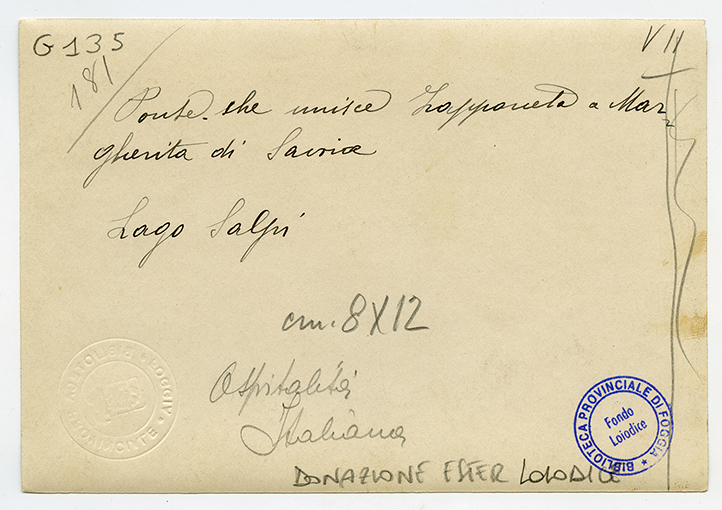 G 135
181
VII
Ponte che unisce Zapponeta a Mar=
gherita di Savoia
Lago Salpi
cm. 8X12
Ospitalità
Italiana
DONAZIONE ESTER LOIODICE
BIBLIOTECA PROVINCIALE DI FOGGIA
Fondo
Loiodice